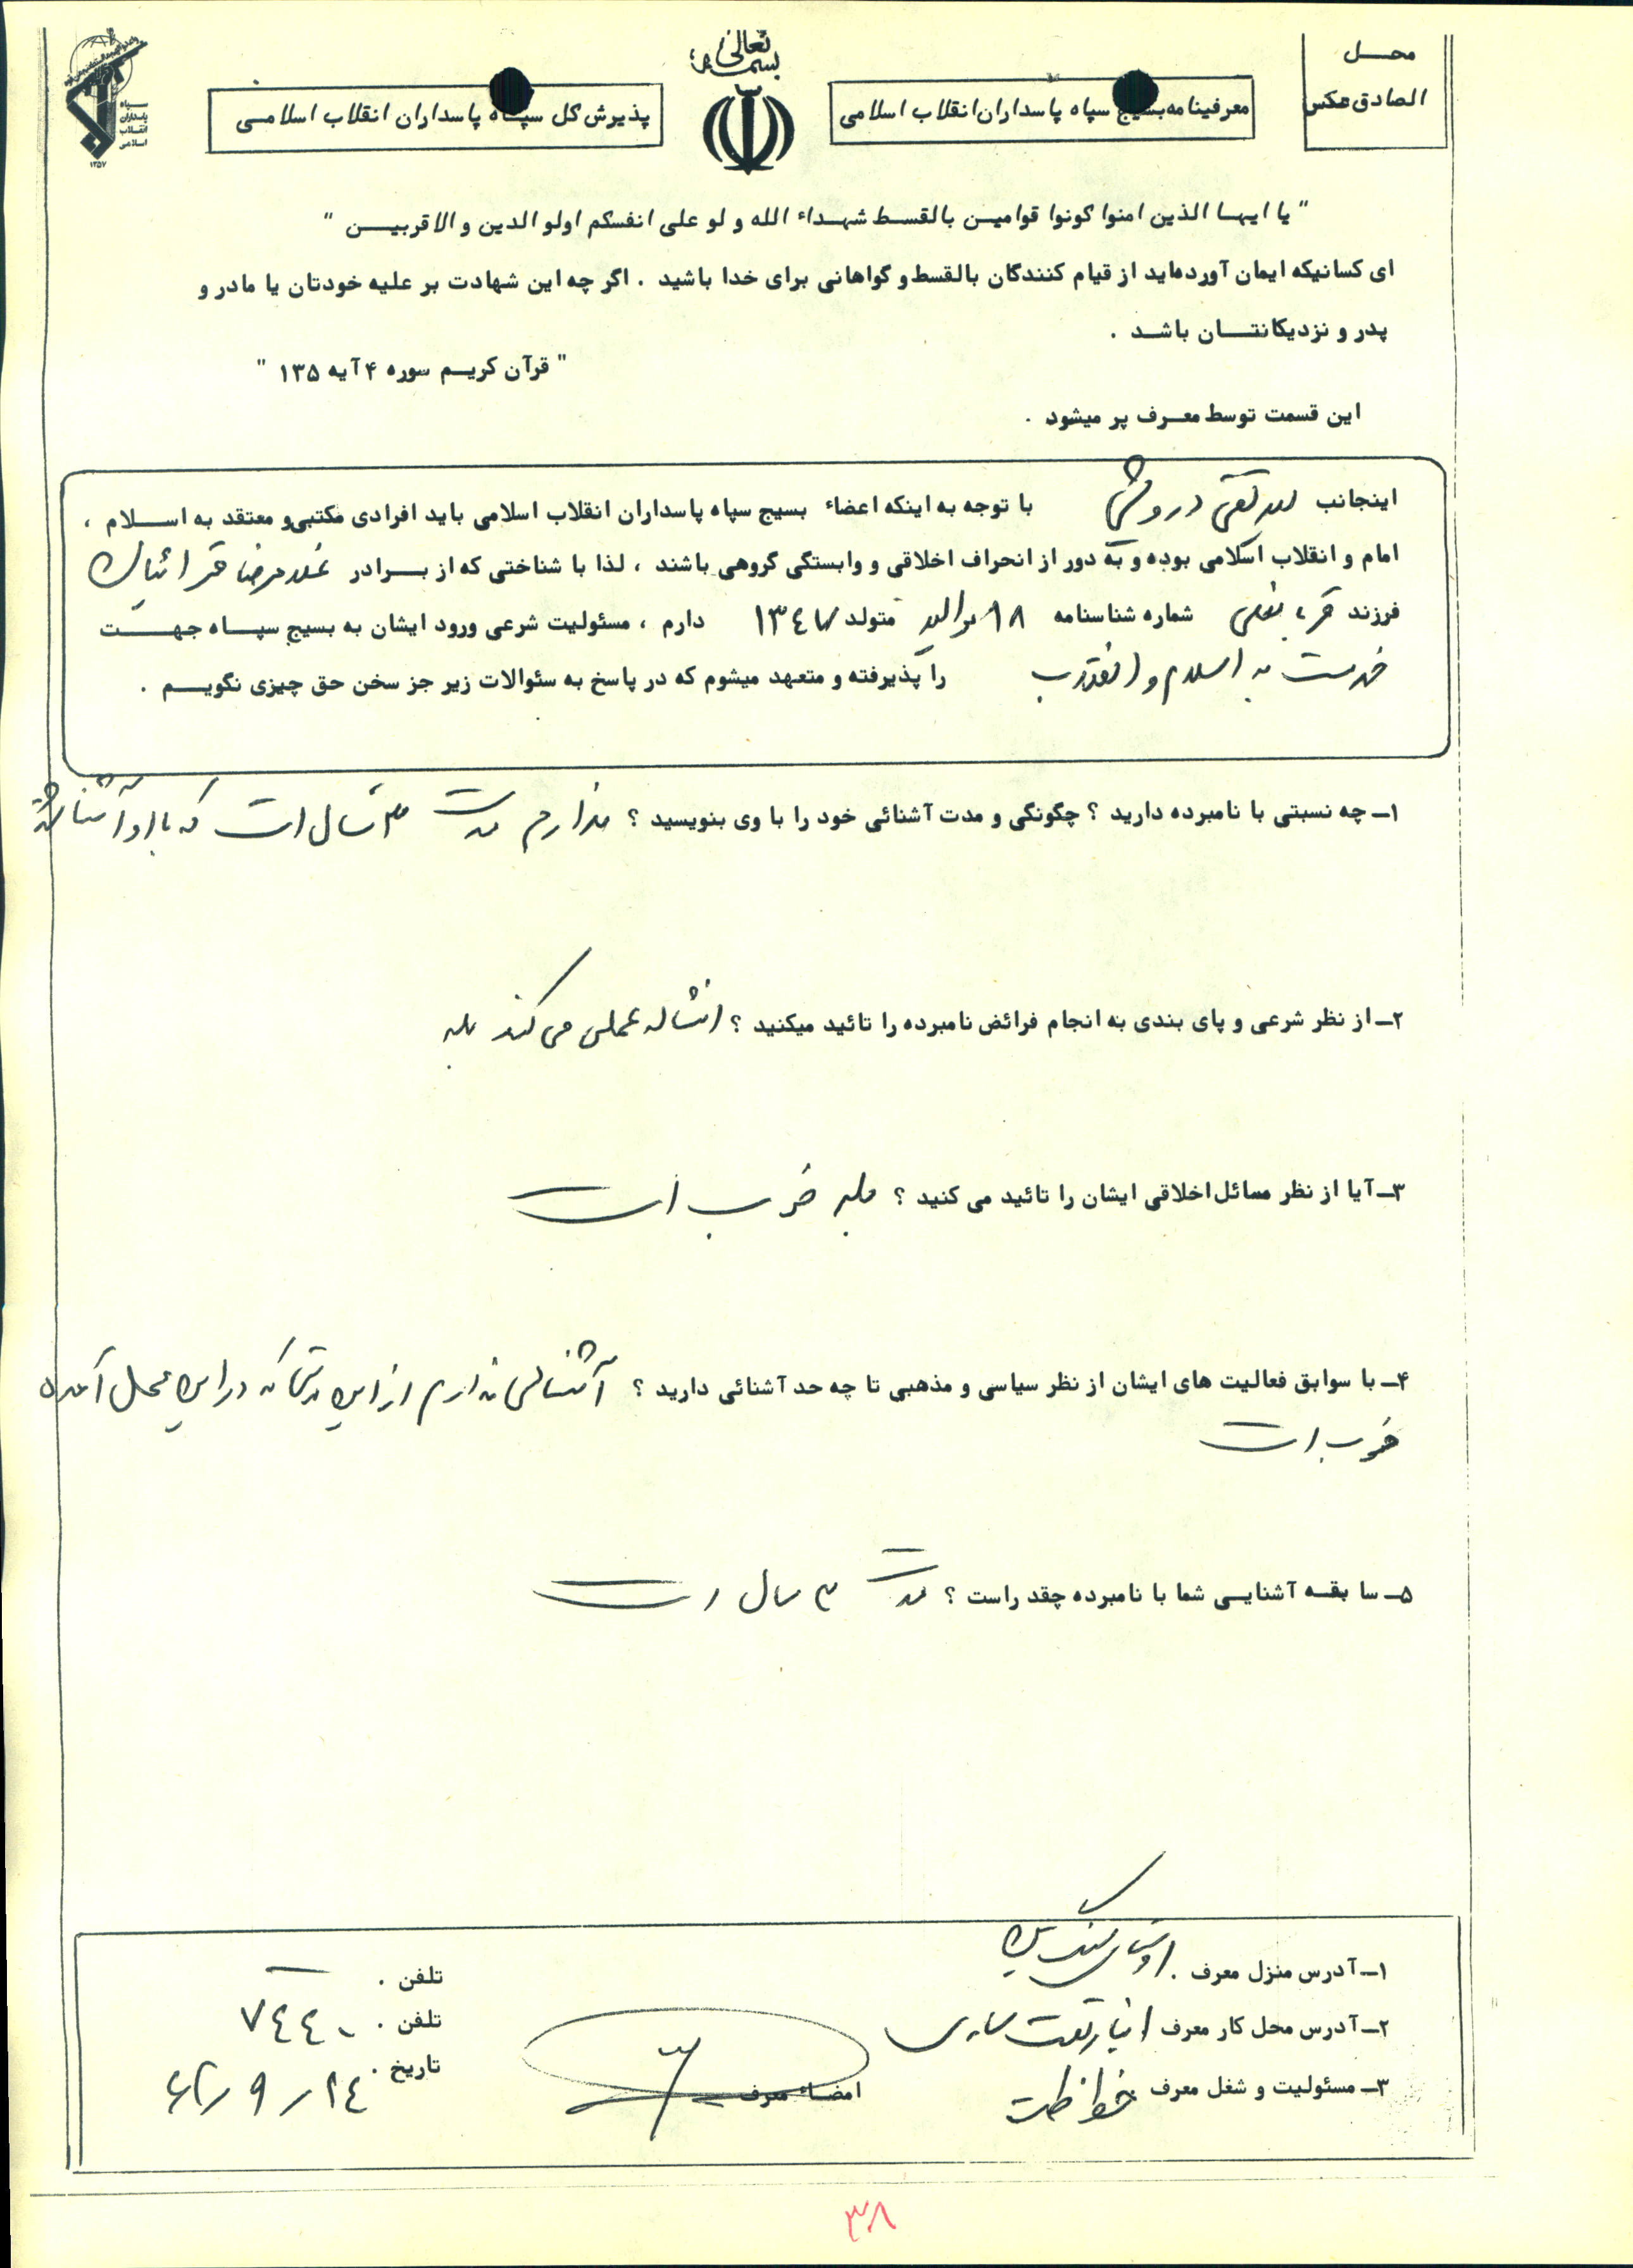 بسمه تعالی
محل
الصاق عکس
معرفینامه بسیج سپاه پاسداران انقلاب اسلامی
پذیرش کل سپاه پاسداران انقلاب اسلامی
سپاه
پاسداران
انقلاب
اسلامی
۱۳۵۷
" یا ایها الذین امنوا کونوا قوامین بالقسط شهداء الله و لو علی انفسکم اولو الدین و الاقربین "
ای کسانیکه ایمان آورده‌اید از قیام کنندگان بالقسط و گواهانی برای خدا باشید . اگر چه این شهادت بر علیه خودتان یا مادر و
پدر و نزدیکانتان باشد .
" قرآن کریم سوره ۴ آیه ۱۳۵ "
این قسمت توسط معرف پر میشود .
اینجانب تقی درویش با توجه به اینکه اعضاء بسیج سپاه پاسداران انقلاب اسلامی باید افرادی مکتبی و معتقد به اسلام ،
امام و انقلاب اسلامی بوده و به دور از انحراف اخلاقی و وابستگی گروهی باشند ، لذا با شناختی که از برادر غلامرضا قرائیان
فرزند قربانعلی شماره شناسنامه ۱۸ متولد ۱۳۴۷ دارم ، مسئولیت شرعی ورود ایشان به بسیج سپاه جهت
خدمت به اسلام و انقلاب را پذیرفته و متعهد میشوم که در پاسخ به سئوالات زیر جز سخن حق چیزی نگویم .
۱ـ چه نسبتی با نامبرده دارید ؟ چگونگی و مدت آشنائی خود را با وی بنویسید ؟ ندارم مدت ۳ سال است که با او آشنا
۲ـ از نظر شرعی و پای بندی به انجام فرائض نامبرده را تائید میکنید ؟ انشاله عملی می کند بله
۳ـ آیا از نظر مسائل اخلاقی ایشان را تائید می کنید ؟ بله خوب است
۴ـ با سوابق فعالیت های ایشان از نظر سیاسی و مذهبی تا چه حد آشنائی دارید ؟ آشنائی ندارم از این که در این محل آمده
خوب است
۵ـ سابقه آشنایی شما با نامبرده چقدر است ؟ مدت ۳ سال است
۱ـ آدرس منزل معرف . تلفن . ـ
۲ـ آدرس محل کار معرف انبار نفت ساری تلفن . ۷۴۴۰
۳ـ مسئولیت و شغل معرف حفاظت امضاء معرف تاریخ . ۲۴ / ۹ / ۶۲
۳۸